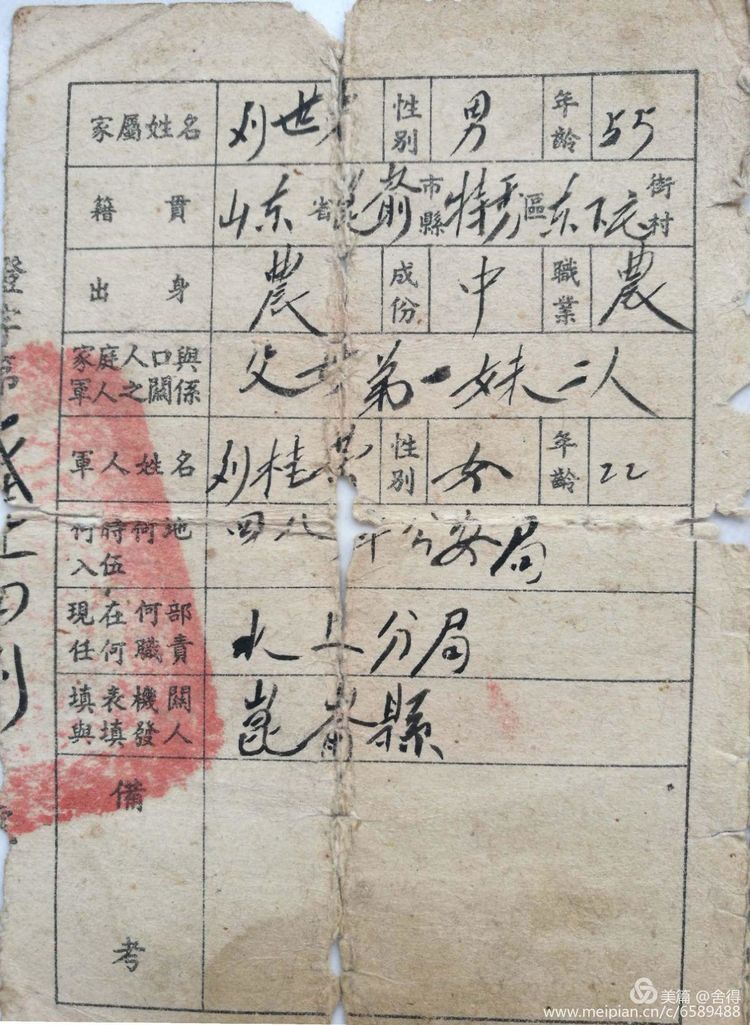 家屬姓名 刘世 性別 男 年齡 55
籍貫 山东省崑嵛市縣特區东下 街村
出身 農 成份 中 職業 農
家庭人口與軍人之關係 父母弟一妹二人
軍人姓名 刘桂 性別 女 年齡 22
何時何地入伍 四八年公安局
現在何部任何職責 水上分局
填表機關與填發人 崑嵛縣
備考
美篇 @舍得
www.meipian.cn/c/6589488